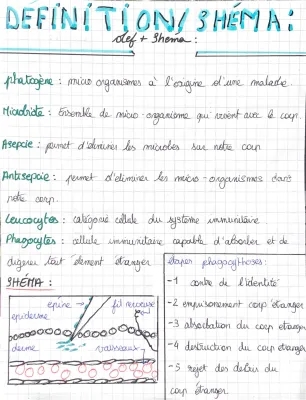 DEFINITION/SHÉMA:
def + Shema:
phatogène: micro organismes à l'origine d'une maladie.
Microbiote: Ensemble de micro-organisme qui vivent avec le corp.
Asepsie: permet d'éliminer les microbes sur notre corp
Antisepsie: permet d'éliminer les micro-organismes dans
notre corp.
Leucocytes: catégorie cellule du système immunitaire.
Phagocytes: cellule immunitaire capable d'absorber et de
digerer tout element étranger
SHEMA:
epine
fil nerveuse
epiderme
derme
vaisseaux
étapes phagocythoses:
-1 contre de l'identité
-2 emprisonement corp étranger
-3 absorbation du corp étranger
-4 destruction du corp étranger
-5 rejet des debris du
corp étranger